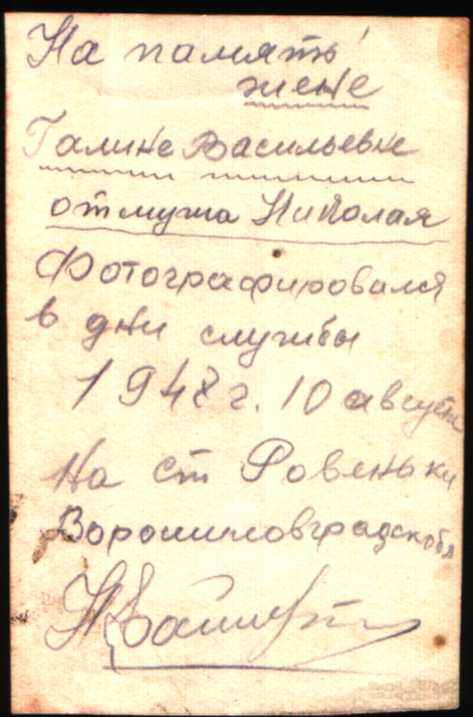 На память
жене
Галине Васильевне
от мужа Николая
Фотографировался
в дни службы
1948 г. 10 августа
На ст Ровеньки
Ворошиловградск обл